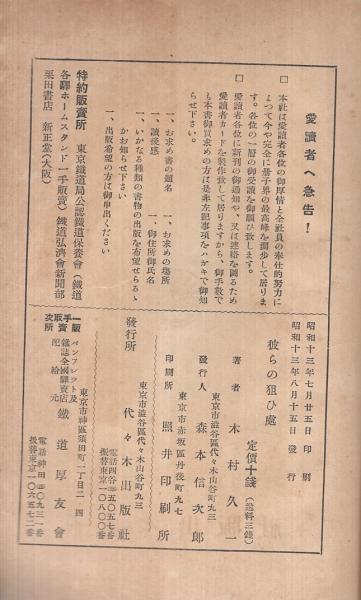 愛讀者へ急告!
□ 本社は愛讀者各位の御厚情と全社員の奉仕的努力に
よつて今や完全に册子界の最高峰を濶步して居りま
す。各位の一層の御愛讀を御願ひ致します。
□ 愛讀者各位に新刊の御通知や、又は連絡を圖るため
愛讀者カードを製作致して居りますから、御手數で
も本書御買求めの方は是非左記事項をハガキで御知
らせ下さい。
一、お求め書の題名 一、お求めの場所
一、讀後感 一、御住所御氏名
一、いかなる種類の書物の出版を希望せらるゝ
かお知らせ下さい
一、出版希望の方は御申出ください
特約販賣所 東京鐵道局公認鐵道保養會(鐵道
各驛ホームスタンド一手販賣)鐵道弘濟會新聞部
栗田書店 新正堂(大阪)
昭和十三年七月廿五日印刷
昭和十三年八月十五日發行
彼らの狙ひ處
定價十錢(送料三錢)
著者 木村久一
東京市澁谷區代々木山谷町九三
發行人 森本信次郎
東京市赤坂區丹後町九七
印刷所 照井印刷所
發行所
東京市澁谷區代々木山谷町九三
代々木出版社
電話四谷
振替東京
一手販賣及次所
パンフレット
鐵誌全國驛賣店
配給元
東京市神田區須田町一丁目二四
鐵道厚友會
電話神田
振替東京